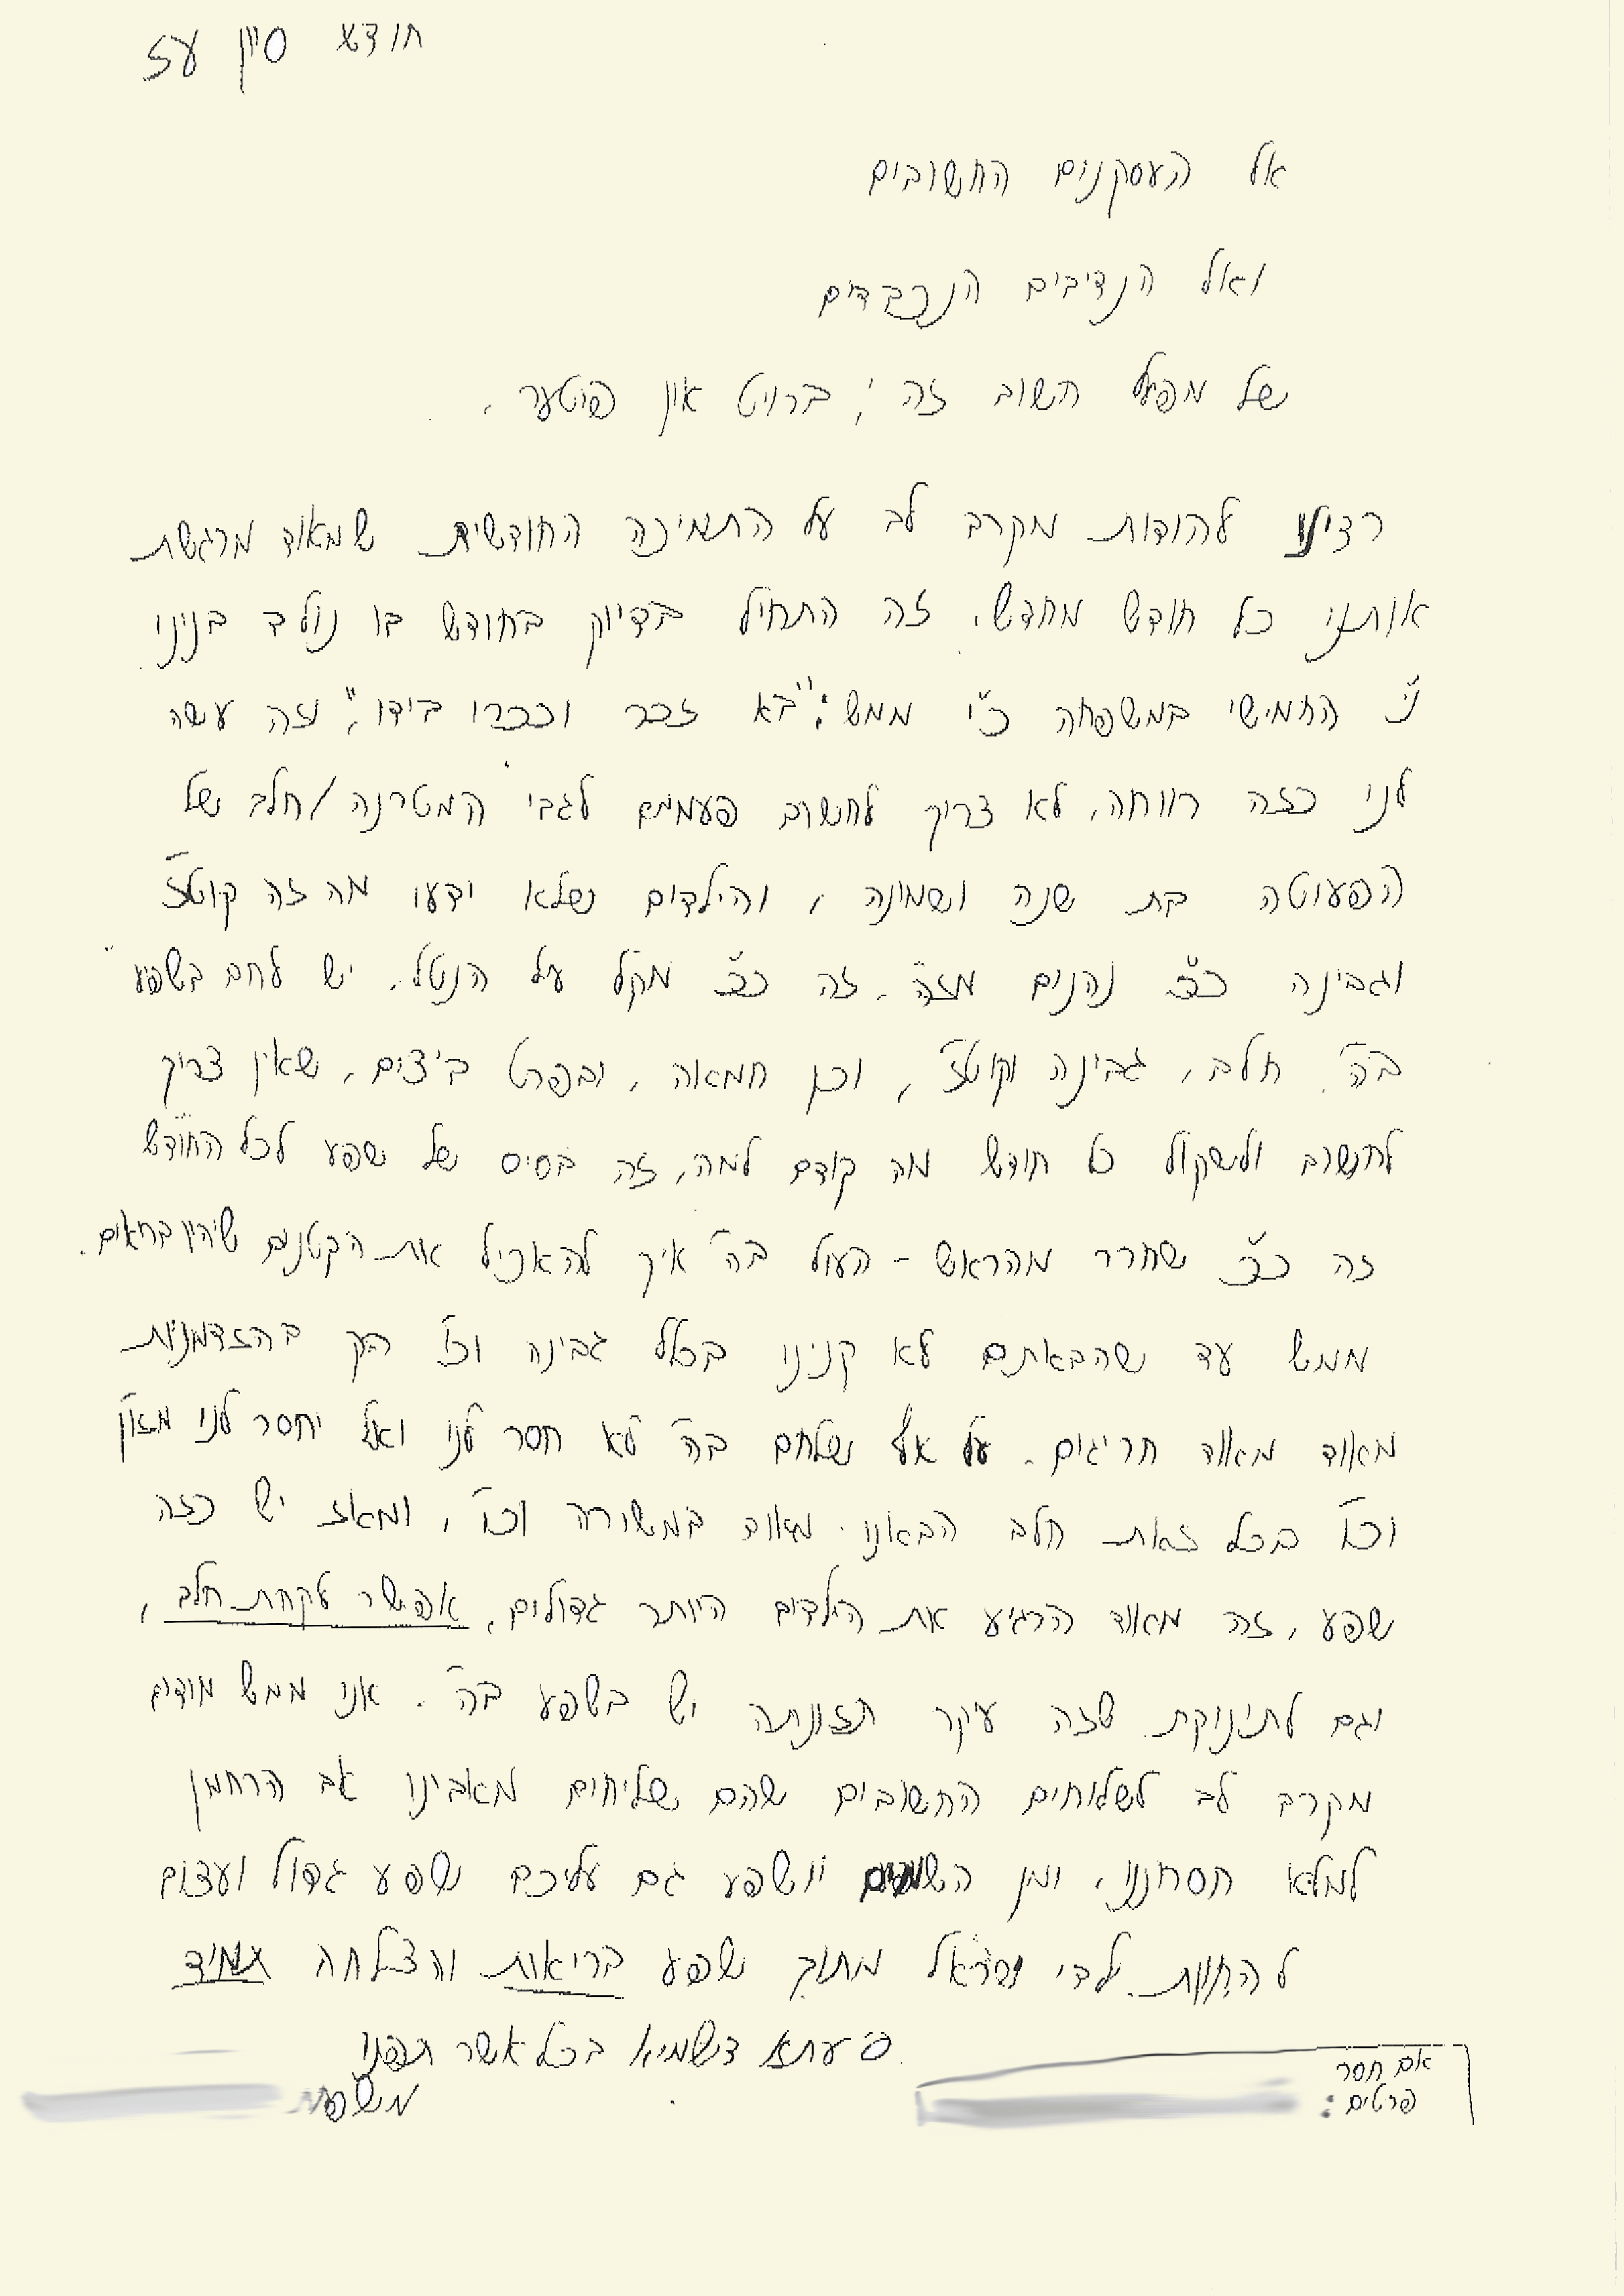 חודש סיון עז
אל העסקנים החשובים
ואל הנדיבים הנכבדים
של מפעל חשוב זה, ברויט און פוטער.
רצינו להודות מקרב לב על התמיכה החודשית שמאוד מרגשת
אותנו כל חודש מחדש. זה התחיל בדיוק בחודש בו נולד בנינו
ני' החמישי במשפחה כ"י ממש: "בא זכר וככרו בידו", וזה עשה
לנו כזה רווחה, לא צריך לחשוב פעמים לגבי המטרנה/חלב של
הפעוטה בת שנה ושמונה, והילדים שלא ידעו מה זה קוטג'
וגבינה כ"כ נהנים מזה. זה כ"כ מקל על הנטל. יש להם בשפע
בה" חלב, גבינה וקוטג', וכן חמאה, ובפרט ביצים, שאין צריך
לחשוב ולשקול כל חודש מה קודם למה, זה בסיס של שפע לכל החודש
זה כ"כ שחרר מהראש - העול בה" איך להאכיל את הקטנים שיהיו בריאים.
ממש עד שהבאתם לא קנינו בכלל גבינה וכו' רק בהזדמנות
מאוד מאוד חריגים. על אף שלחם בה" לא חסר לנו ואל יחסר לנו מזון
וכו' בכל זאת חלב הבאנו מאוד במשורה וכו', ומאז יש כזה
שפע, זה מאוד הרגיע את הילדים היותר גדולים, אפשר לקחת חלב,
וגם לתינוקת שזה עיקר תזונתה יש בשפע בה". אני ממש מודים
מקרב לב לשלוחים החשובים שהם שליחים מאבינו אב הרחמן
למלא חסרוננו, ומן השמים יושפע גם עליכם שפע גדול ועצום
להחיות ילדי ישראל מתוך שפע בריאות והצלחה תמיד
סיעתא דשמיא בכל אשר תפנו
משפחת
אם חסר
פרטים: